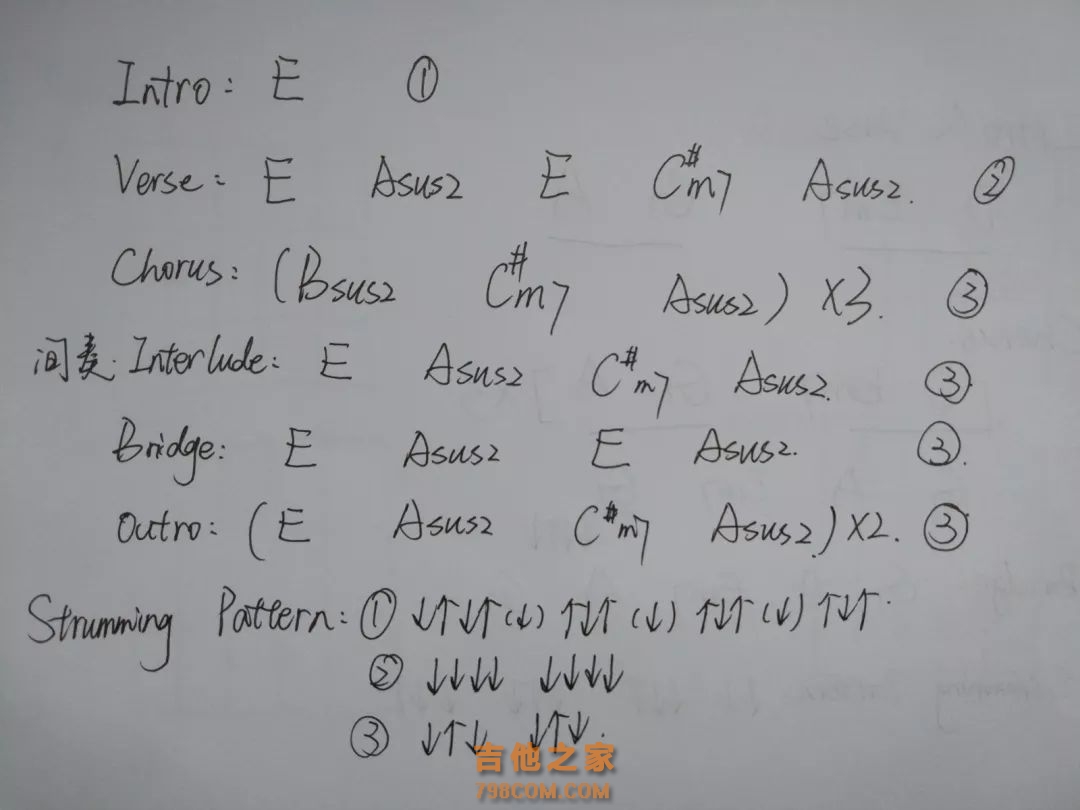 Intro: E ①
Verse: E Asus2 E C#m7 Asus2. ②
Chorus: (Bsus2 C#m7 Asus2) X3. ③
间奏. Interlude: E Asus2 C#m7 Asus2. ③
Bridge: E Asus2 E Asus2. ③.
Outro: (E Asus2 C#m7 Asus2) X2. ③
Strumming Pattern: ① ↓↑↓↑(↓) ↑↓↑ (↓) ↑↓↑(↓) ↑↓↑.
② ↓↓↓↓ ↓↓↓↓
③ ↓↑↓ ↓↑↓.
吉他之家
798COM.COM